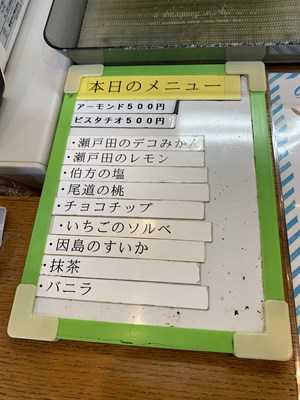 本日のメニュー
アーモンド500円
ピスタチオ500円
・瀬戸田のデコみかん
・瀬戸田のレモン
・伯方の塩
・尾道の桃
・チョコチップ
・いちごのソルベ
・因島のすいか
・抹茶
・バニラ